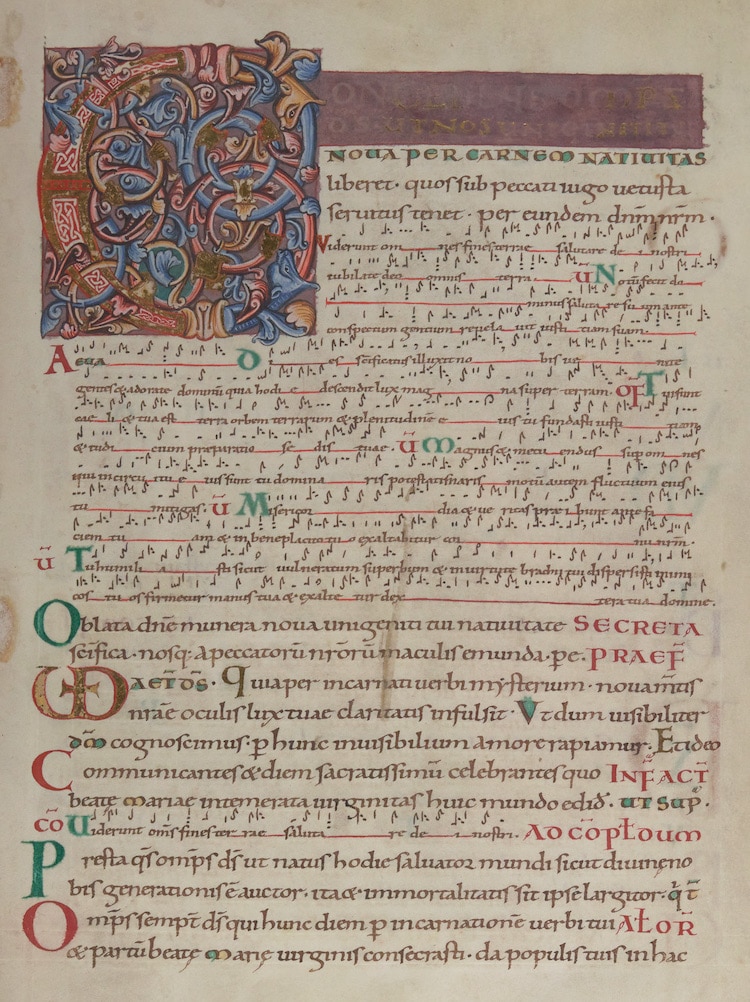 C
NOVA PER CARNEM NATIVITAS
liberet · quos sub peccati iugo vetusta
servitus tenet · per eundem dnm nrm ·
Viderunt om nes fines terrae salutare de i nostri
iubilate deo omnis terra ÛN otum fecit do
minus saluta re suum ante
conspectum gentium revela vit iusti tiam suam.
A LLEVA D es scificatus illuxit no bis ve nite
gentes & adorate dominum quia hodi e descendit lux mag na super terram. OF T ui sunt
cae li & tua est terra orbem terrarum & plenitudinē e ius tu fundasti iusti
& iudi cium preparatio se dis tuae · Û M agnus & metu endus sup om nes
qui in circu itu e ius sunt tu domina ris potestati maris motū autem fluctuum eius
tu mitigas · Û M isericor dia & ve ritas prae i bunt ante fa
ciem tu am & in beneplacito tu o exaltabitur cor nu nrm ·
Û T u humili a sti sicut vulneratum superbum & in virtute brachii tui dispersisti inimi
cos tu os firmetur manus tua & exalte tur dex tera tua domine.
Oblata dne munera nova unigeniti tui nativitate SECRETA
scifica · nosq; a peccatorū nrorū maculis emunda · pe · PRAEF
VD AETDS · Quia per incarnati verbi mysterium · nova mtis
nrae oculis lux tuae claritatis infulsit · Vt dum visibiliter
dm cognoscimus · p hunc invisibilium amore rapiamur · Et ideo
Communicantes & diem sacratissimū celebrantes quo INF ACT
beate Mariae intemerata virginitas huic mundo edid · UT SUP ·
CO Viderunt oms fines ter rae saluta re de i nostri · AD COPLDUM
Presta qs omps ds ut natus hodie salvator mundi sicut divine no
bis generationis ē auctor · ita & immortalitatis sit ipse largitor · q t
Omps sempt ds qui hunc diem p incarnationē verbi tui AL OR
& partū beatę Marię virginis consecrasti · da populis tuis in hac